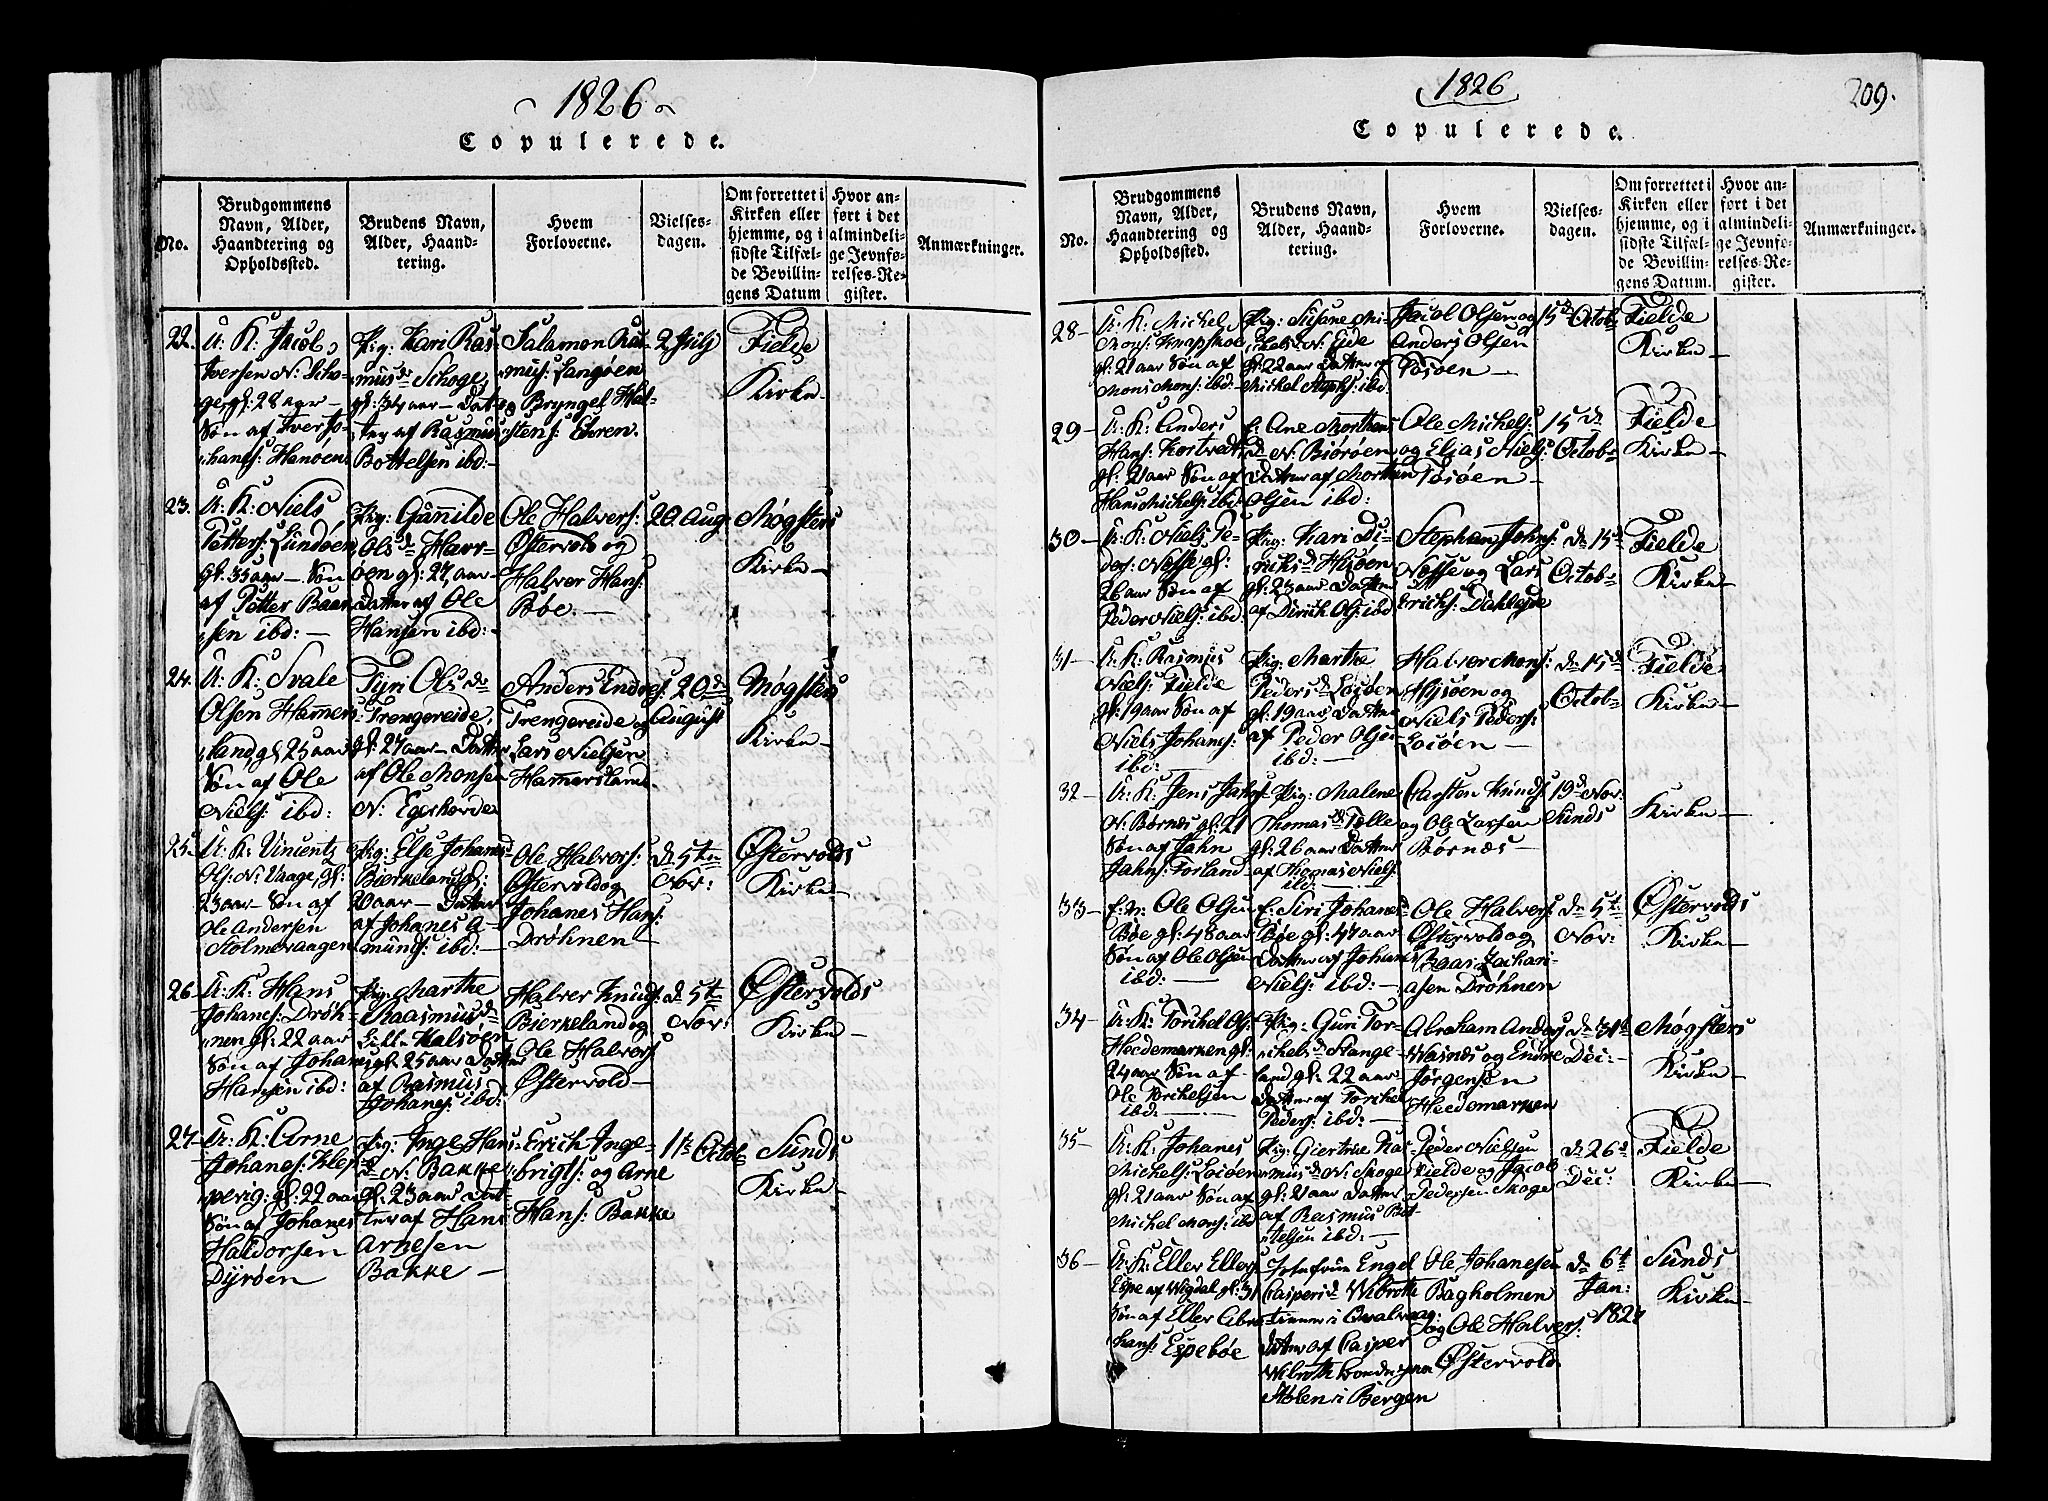 1826
Copulerede.
No.
Brudgommens
Navn, Alder,
Haandtering og
Opholdssted.
Brudens Navn,
Alder, Haand-
tering.
Hvem
Forloverne.
Vielses-
dagen.
Om forrettet i
Kirken eller
hjemme, og i
sidste Tilfæl-
de Bevillin-
gens Datum
Hvor an-
ført i det
almindeli-
ge Jevnfø-
relses-Re-
gister.
Anmærkninger.
22.
U: K: Jacob
Iversen N: Scho-
ge, gl: 28 aar —
Søn af Iver Jo-
hans: Hanøen
Pig: Kari Ras-
mus dr Schoge,
gl: 34 aar — Dat-
ter af Rasmus
Bottelsen ibd:-
Salamon Ras-
mus: Langøen
og Bryngel Hal-
stens: Ebren.
2 July
Fielde
Kirke —
23.
U: K: Niels
Petters: Lundøen
gl: 35 aar — Søn
af Petter Baar-
sen ibd: —
Pig: Gunnilde
Ols d Havr-
øen gl: 27 aar —
Datter af Ole
Hansen ibd:-
Ole Halvers:
Østervold og
Halver Hans:
Bøe. —
20 Aug
Møgsters
Kirke —
24.
U: K: Svale
Olsen Hammers-
land gl 25 aar
Søn af Ole
Niels: ibd:
Tyri Ols d
Trengereide,
gl: 27 aar — Datter
af Ole Monsen
N: Egeshorde
Anders Endres:
Trengereide og
Lars Nielsen
Hammersland
20 d
August
Møgsters
Kirke —
25.
U: K: Vincentz
Ols: N: Vaage, gl:
23 aar — Søn af
Ole Andersen
Holmevaagen
Pig: Else Johanes d
Bierkeland gl:
20 aar — Datter
af Johanes A-
munds: ibd: —
Ole Halvors:
Østervold og
Johanes Hans:
Drøhnen
d: 5te
Nov:
Østervolds
Kirke —
26
U: K: Hans
Johanes: Drøh-
nen gl: 22 aar
Søn af Johanes
Hansen ibd:
Pig: Marthe
Raasmus d
Lill-Kalsøen
gl: 25 aar Datter
af Rasmus
Johanes: ibd:
Halver Knuds:
Bierkeland og
Ole Halvors:
Østervold —
d: 5te
Nov:
Østervolds
Kirke —
27
U: K: Arne
Johanes: Klep-
pevig: gl: 22 aar
Søn af Johanes
Haldorsen
Dyrøen
Pig: Inge Hans-
d N: Bakke
gl: 23 aar Dat-
ter af Hans
Arnesen
Bakke —
Erich Inge-
brigts: og Arne
Hans: Bakke
11te Octob
Sunds
Kirke —
1826
209.
Copulerede.
No.
Brudgommens
Navn, Alder,
Haandtering og
Opholdssted.
Brudens Navn,
Alder, Haand-
tering.
Hvem
Forloverne.
Vielses-
dagen.
Om forrettet i
Kirken eller
hjemme, og i
sidste Tilfæl-
de Bevillin-
gens Datum.
Hvor an-
ført i det
almindeli-
ge Jevnfø-
relses-Re-
gister.
Anmærkninger.
28 —
U: K: Michel
Mons: Knapskoe
gl: 21 aar Søn af
Mons Mons: ibd:
Pig: Susane Mi-
chels d N: Eide
gl: 22 aar Datter af
Michel Stephs: ibd:
Jacob Olsen og
Anders Olsen
Tøsøen —
15 d Octob
Fielde
Kirke —
29 —
U: K: Anders
Hans: Kortvedt
gl: 21 aar Søn af
Hans Michels: ibd:
E: Ane Morthens
d N: Biørøen
Datter af Morthen
Olsen ibd:
Ole Michels:
og Elias Niels:
Tøsøen —
15 d
Octob
Fielde
Kirke —
30 —
U: K: Niels Pe-
ders: Nesse gl:
26 aar Søn af
Peder Niels: ibd:
Pig: Kari Di-
richs d Hisøen
gl: 23 aar Datter
af Dirich Ols: ibd
Stephan Johns:
Nesse og Lars
Erichs: Dahleide
d: 15 d
Octob
Fielde
Kirke —
31 —
U: K: Rasmus
Niels: Fielde
gl: 19 aar Søn af
Niels Johans:
ibd: —
Pig: Marthe
Peders d Løsøen
gl: 19 aar Datter
af Peder Olsen
ibd: —
Halver Mons:
Hisøen og
Niels Peders:
Løsøen —
d: 15 d
Octob
Fielde
Kirke —
32 —
U: K: Jens Jahns:
N: Børnes gl: 21
Søn af Jahn
Jahns: Forland
Pig: Malene
Thomas d Tælle
gl: 26 aar Datter
af Thomas Niels:
ibd: —
Carsten Knuds:
og Ole Larsen
Børnes —
19 d Nov:
Sunds
Kirke —
33 —
E: M: Ole Olsen
Bøe gl: 48 aar
Søn af Ole Olsen
ibd: —
E: Siri Johanes d
Bøe gl: 47 aar
Datter af Johanes
Niels: ibd: —
Ole Halvers:
Østervold og
Baar Zachari-
asen Drøhnen
d: 5t:
Nov:
Østervolds
Kirke —
34 —
U: K: Torchel Ols:
Heedemarken gl:
24 aar Søn af
Ole Torchelsen
ibd: —
Pig: Guri Tor-
chels d Stange-
land gl: 22 aar
Datter af Torchel
Peders: ibd: —
Abraham Anders:
Wasnes og Endre
Jørgensen
Heedemarken
d: 31 t
Dec:
Møgsters
Kirke —
35 —
U: K: Johanes
Michels: Løsøen
gl: 21 aar Søn af
Michel Mons: ibd
Pig: Giertrue Ras-
mus d N: Skoge
gl: 21 aar Datter
af Rasmus Bot-
telsen ibd: —
Peder Nielsen
Fielde og Jacob
Pedersen Skoge
d: 26 d
Dec:
Fielde
Kirke —
36 —
U: K: Eller Ellers:
Espe af Wigdal gl: 31
Søn af Eller Abra-
hams: Espebøe
Jomfrue Engel
Caspers d Wibroth
tienner i Qvalvaag:
Datter af Casper
Wibroth boende paa
Stølen i Bergen
Ole Johanesen
Bagholmen
og Ole Halvers:
Østervold
d: 6 t
Jan:
1827
Sunds
Kirke —